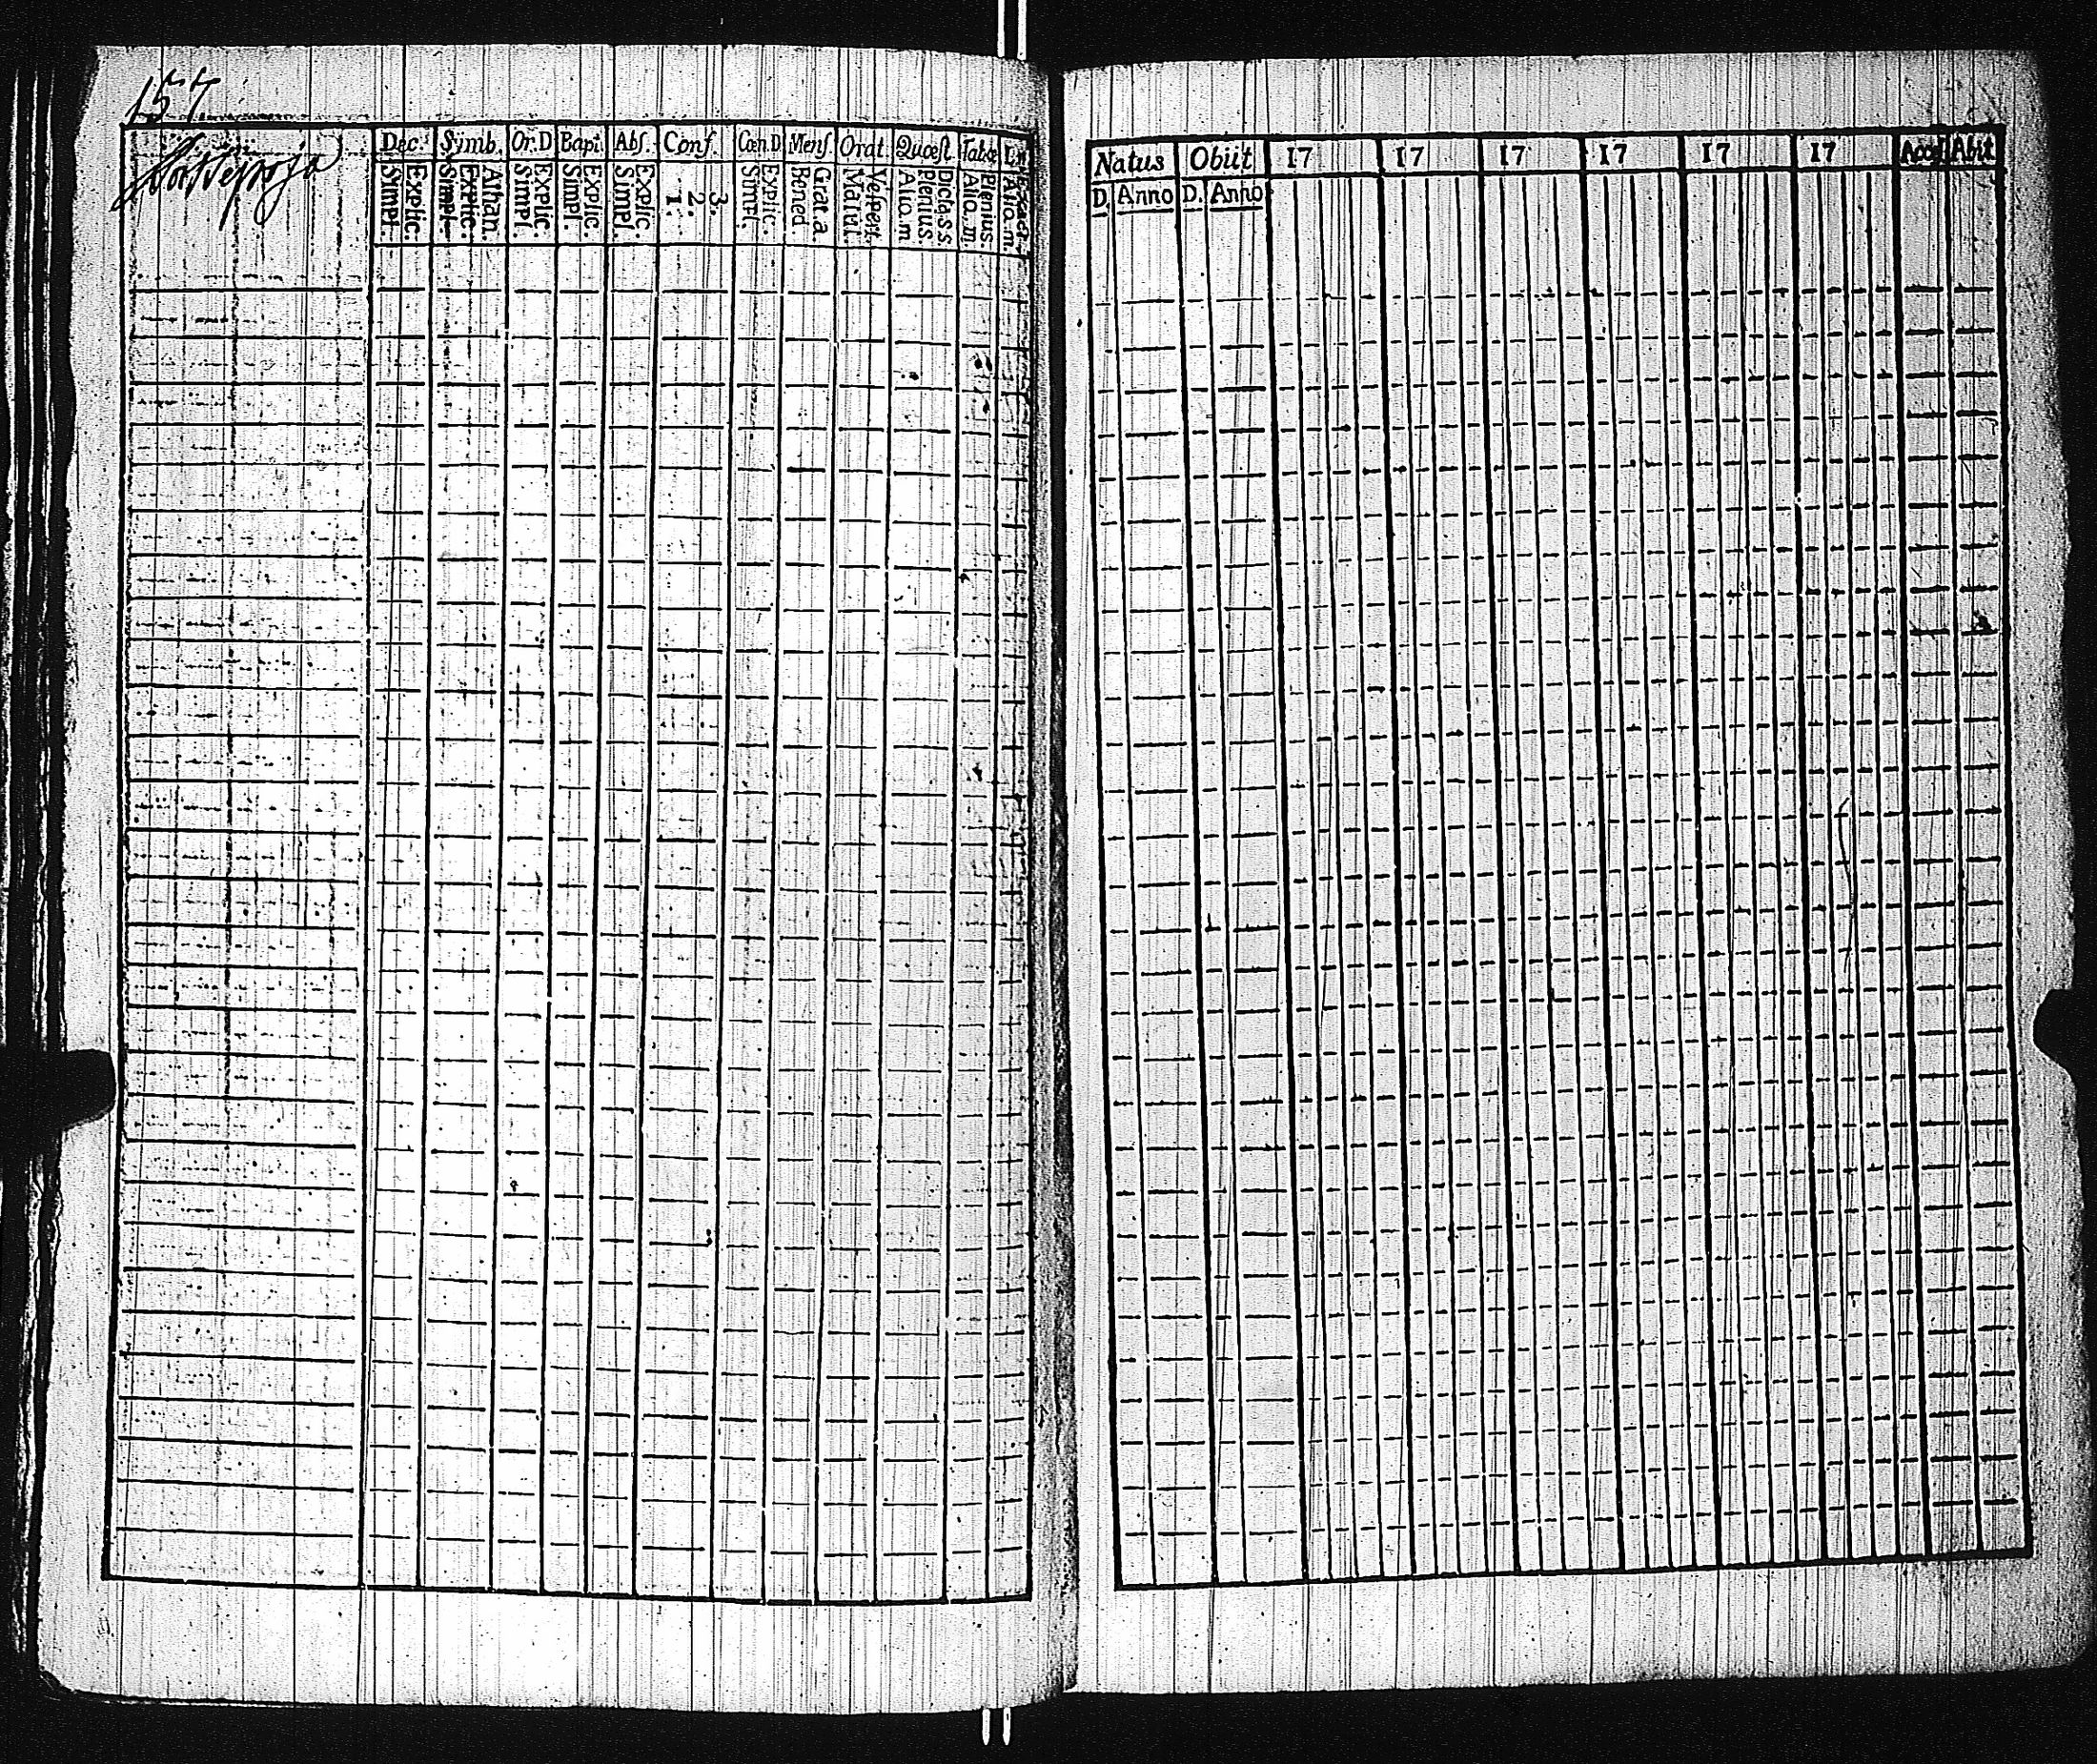 157
Dec. Symb. Or. D Bapt. Abs. Conf. Cœn. D Mens. Orat. Quæst. Tabœ
Explic. Simpl. Athan. Explic. Simpl. Explic. Simpl. Explic. Simpl. Explic. Simpl. 3. 2. 1. Explic. Simpl. Grat. a. Bened Vespert. Matut. Dicta. s. s. Plenius. Alio. m Plenius. Alio. m. Exact. Alio. m.
Natus Obiit 17 17 17 17 17 17 Acces Abit
D. Anno D. Anno